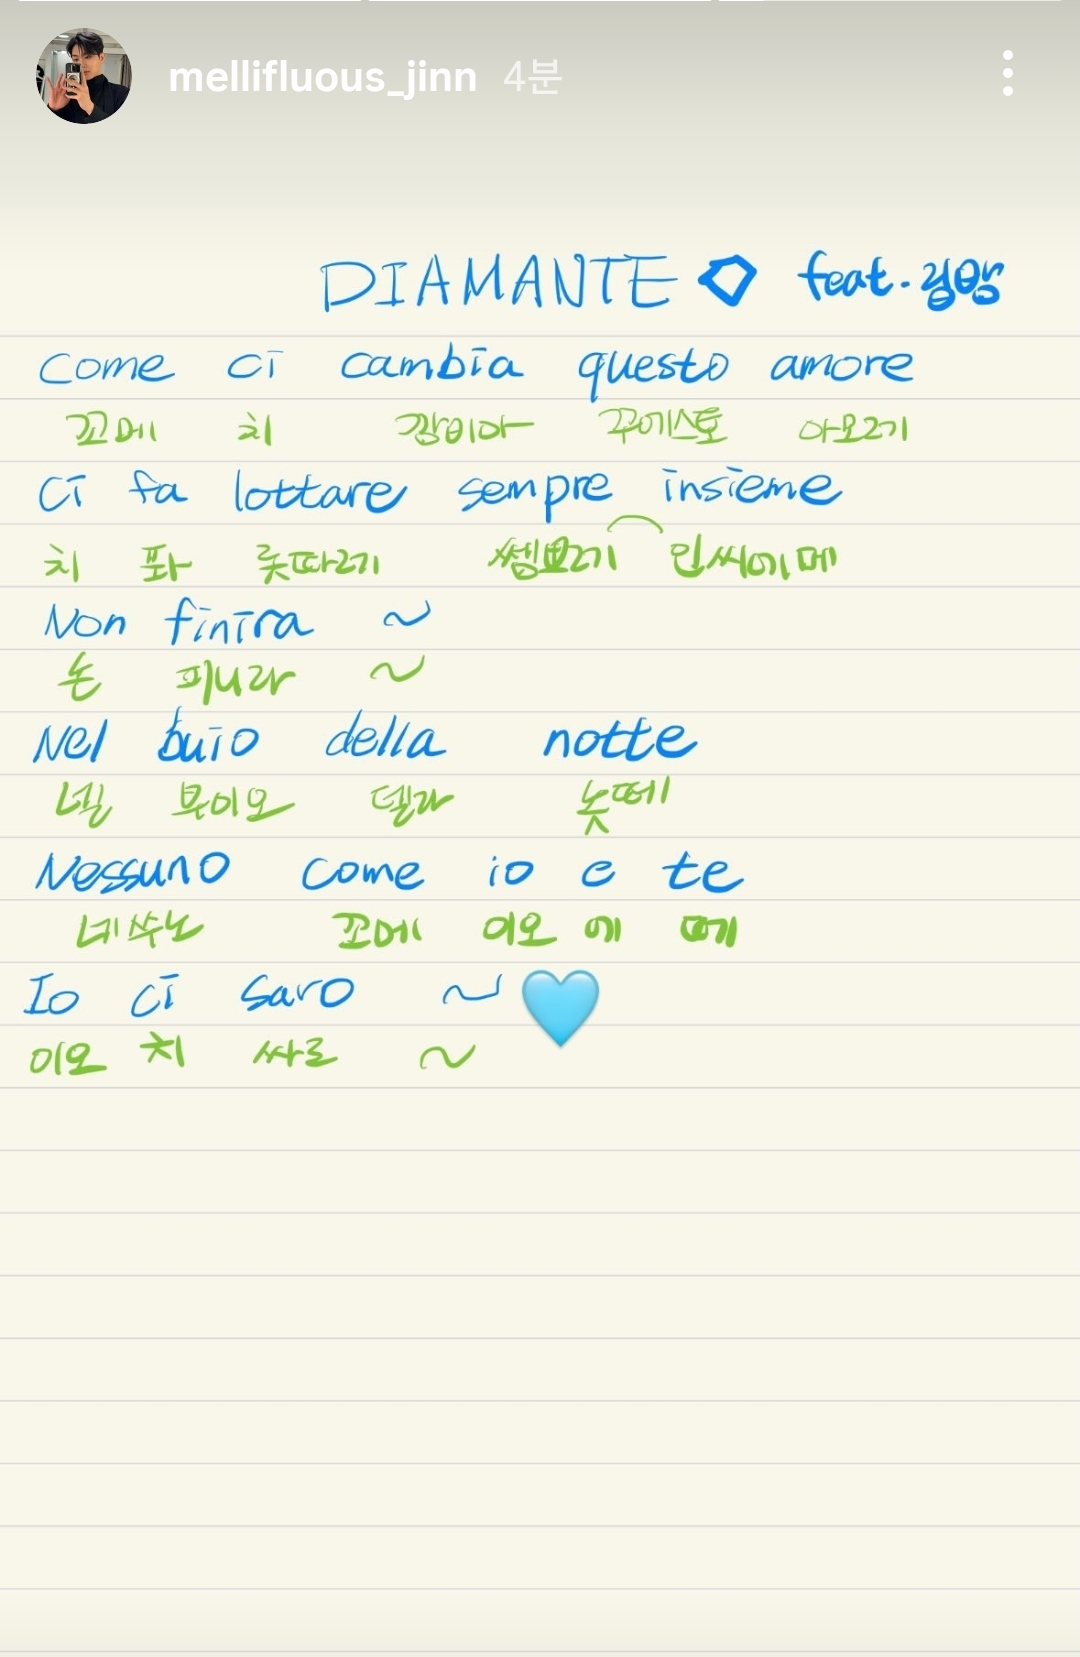 mellifluous_jinn 4분
DIAMANTE feat.
Come ci cambia questo amore
꼬메 치 깜비아 꾸에스토 아모레
Ci fa lottare sempre insieme
치 퐈 롯따레 쎔쁘레 인씨에메
Non finira ~
논 피니라 ~
Nel buio della notte
넬 부이오 델라 놋떼
Nessuno come io e te
네쑤노 꼬메 이오 에 떼
Io ci saro ~
이오 치 싸로 ~